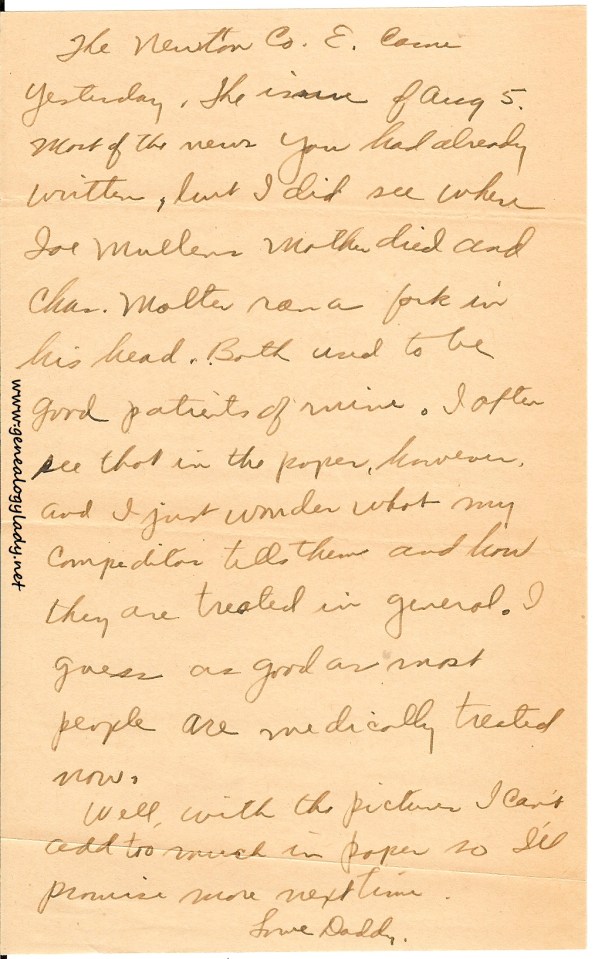 The Newton Co. E. Came
Yesterday, The issue of Aug 5.
Most of the news you had already
written, but I did see where
Joe Mullens Mother died and
Chas. Molter ran a fork in
his head. Both used to be
good patients of mine. I often
see that in the paper, however,
and I just wonder what my
compeditor tells them and how
they are treated in general. I
guess as good as most
people are medically treated
now.
Well, with the pictures I can't
add too much in paper so I'll
promise more next time.
Love Daddy.
www.genealogylady.net